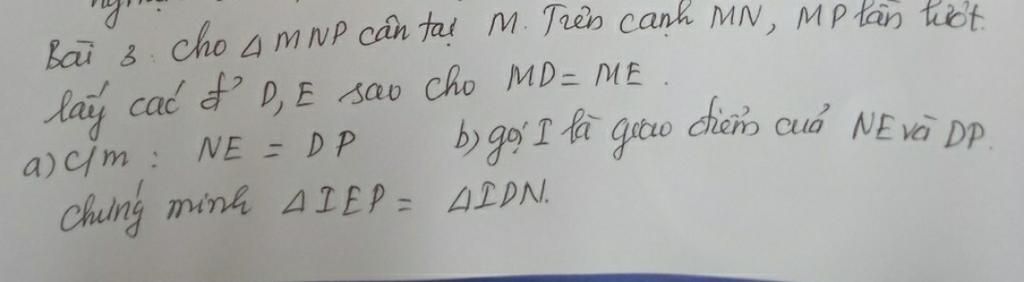 Bài 3. Cho Δ MNP cân tại M. Trên cạnh MN, MP lần lượt.
lấy các đ' D, E sao cho MD = ME.
a) C/m : NE = DP b) gọi I là giao điểm cuả NE và DP.
Chứng minh Δ IEP = Δ IDN.